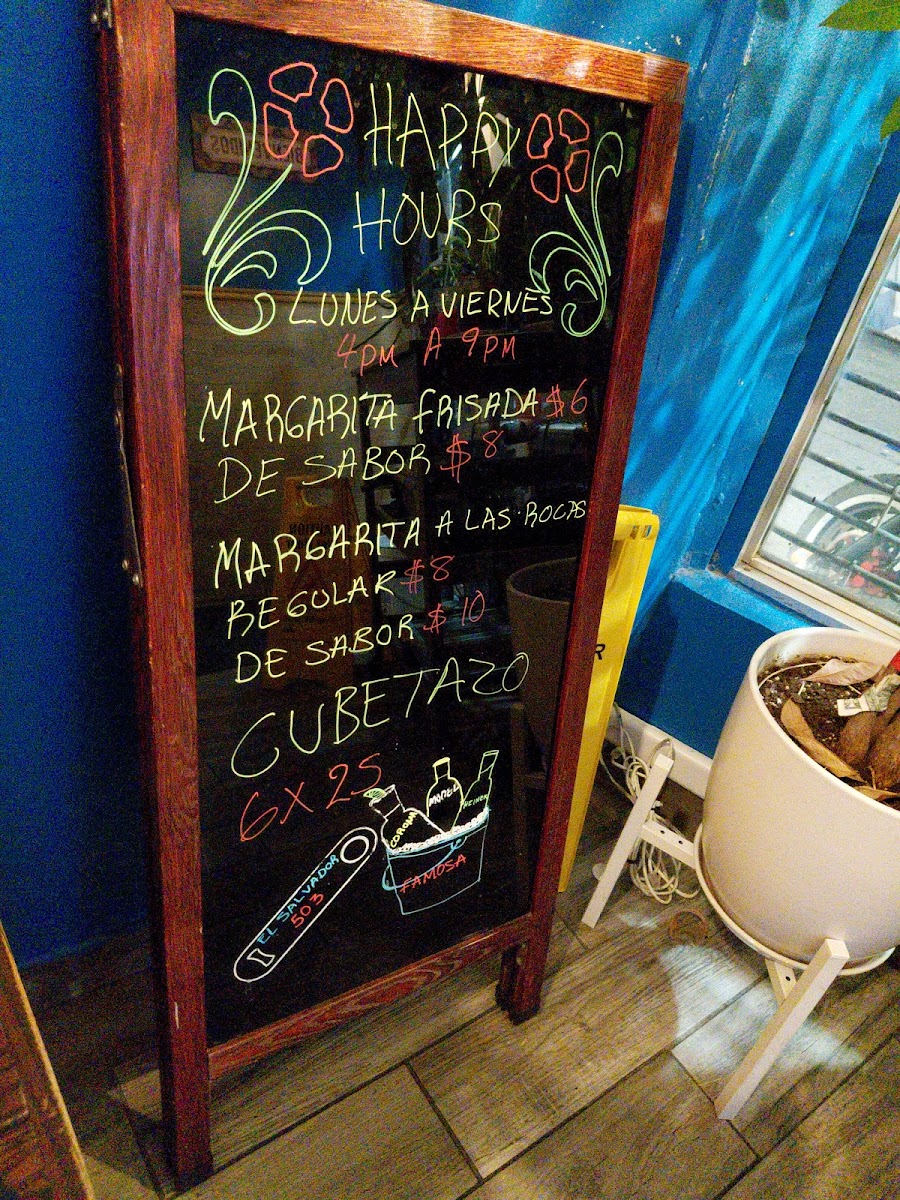 HAPPY
HOURS
LUNES A VIERNES
4PM A 9PM
MARGARITA FRISADA $6
DE SABOR $8
MARGARITA A LAS ROCAS
REGULAR $8
DE SABOR $10
CUBETAZO
6X25
CORONA
MODEL
HEINEN
FAMOSA
EL SALVADOR
503
R